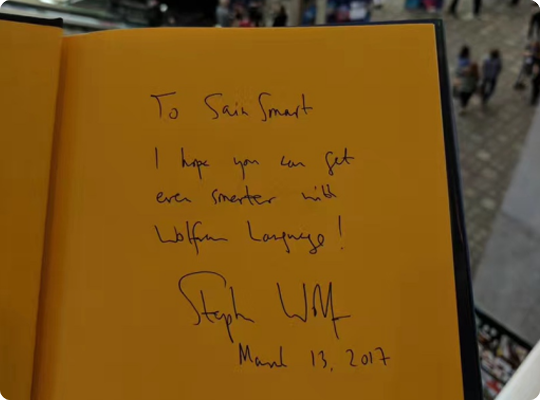 To SainSmart
I hope you can get
even smarter with
Wolfram Language!
Stephen Wolfram
March 13, 2017